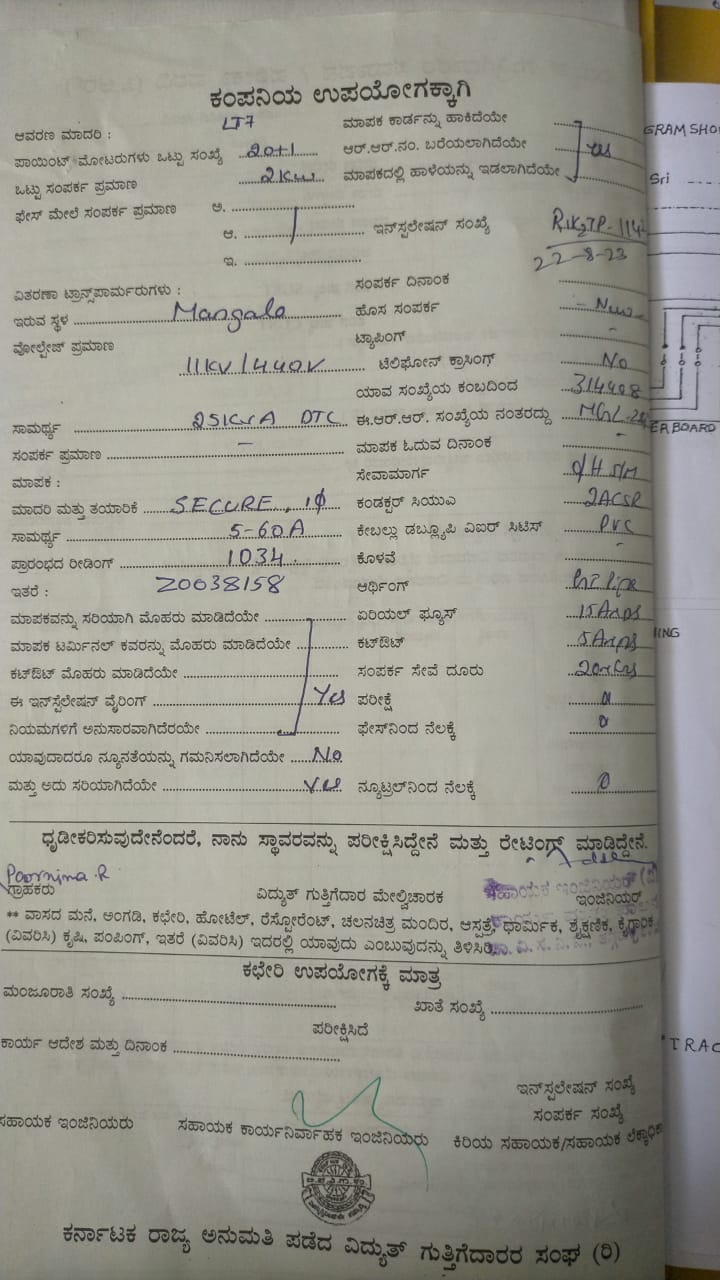 ಕಂಪನಿಯ ಉಪಯೋಗಕ್ಕಾಗಿ
ಆವರಣ ಮಾದರಿ : LT7 ಮಾಪಕ ಕಾರ್ಡನ್ನು ಹಾಕಿದೆಯೇ
ಪಾಯಿಂಟ್ ಮೋಟರುಗಳು ಒಟ್ಟು ಸಂಖ್ಯೆ 20+1 ಆರ್.ಆರ್.ನಂ. ಬರೆಯಲಾಗಿದೆಯೇ Yes
ಒಟ್ಟು ಸಂಪರ್ಕ ಪ್ರಮಾಣ 2KW ಮಾಪಕದಲ್ಲಿ ಹಾಳೆಯನ್ನು ಇಡಲಾಗಿದೆಯೇ
ಫೇಸ್ ಮೇಲೆ ಸಂಪರ್ಕ ಪ್ರಮಾಣ ಅ.
ಆ. ಇನ್‌ಸ್ಟಲೇಷನ್ ಸಂಖ್ಯೆ
ಇ. 22-8-23
ವಿತರಣಾ ಟ್ರಾನ್ಸ್‌ಪಾರ್ಮರುಗಳು : ಸಂಪರ್ಕ ದಿನಾಂಕ
ಇರುವ ಸ್ಥಳ Mangala ಹೊಸ ಸಂಪರ್ಕ New
ವೋಲ್ಟೇಜ್ ಪ್ರಮಾಣ ಟ್ಯಾಪಿಂಗ್ -
11KV/440V ಟೆಲಿಫೋನ್ ಕ್ರಾಸಿಂಗ್ No
ಯಾವ ಸಂಖ್ಯೆಯ ಕಂಬದಿಂದ 314408
ಸಾಮರ್ಥ್ಯ 25KVA DTC ಈ.ಆರ್.ಆರ್. ಸಂಖ್ಯೆಯ ನಂತರದ್ದು
ಸಂಪರ್ಕ ಪ್ರಮಾಣ - ಮಾಪಕ ಓದುವ ದಿನಾಂಕ -
ಮಾಪಕ : ಸೇವಾಮಾರ್ಗ O/H S/M
ಮಾದರಿ ಮತ್ತು ತಯಾರಿಕೆ SECURE, 1ϕ ಕಂಡಕ್ಟರ್ ಸಿಯುಎ 2ACSR
ಸಾಮರ್ಥ್ಯ 5-60A ಕೇಬಲ್ಲು ಡಬ್ಲ್ಯೂಪಿ ಎಐಆರ್ ಸಿಟಿಸ್ PVC
ಪ್ರಾರಂಭದ ರೀಡಿಂಗ್ 1034 ಕೊಳವೆ -
ಇತರೆ : Z0038158 ಆರ್ಥಿಂಗ್ GI Pipe
ಮಾಪಕವನ್ನು ಸರಿಯಾಗಿ ಮೊಹರು ಮಾಡಿದೆಯೇ ಏರಿಯಲ್ ಫ್ಯೂಸ್ 15Amps
ಮಾಪಕ ಟರ್ಮಿನಲ್ ಕವರನ್ನು ಮೊಹರು ಮಾಡಿದೆಯೇ ಕಟ್‌ಔಟ್ 5Amps
ಕಟ್‌ಔಟ್ ಮೊಹರು ಮಾಡಿದೆಯೇ ಸಂಪರ್ಕ ಸೇವೆ ದೂರು
ಈ ಇನ್‌ಸ್ಟಲೇಷನ್ ವೈರಿಂಗ್ Yes ಪರೀಕ್ಷೆ
ನಿಯಮಗಳಿಗೆ ಅನುಸಾರವಾಗಿದೆರಯೇ ಫೇಸ್‌ನಿಂದ ನೆಲಕ್ಕೆ
ಯಾವುದಾದರೂ ನ್ಯೂನತೆಯನ್ನು ಗಮನಿಸಲಾಗಿದೆಯೇ No
ಮತ್ತು ಅದು ಸರಿಯಾಗಿದೆಯೇ Yes ನ್ಯೂಟ್ರಲ್‌ನಿಂದ ನೆಲಕ್ಕೆ
ಧೃಡೀಕರಿಸುವುದೇನೆಂದರೆ, ನಾನು ಸ್ಥಾವರವನ್ನು ಪರೀಕ್ಷಿಸಿದ್ದೇನೆ ಮತ್ತು ರೇಟಿಂಗ್ ಮಾಡಿದ್ದೇನೆ.
Poornima.R
ಗ್ರಾಹಕರು ವಿದ್ಯುತ್ ಗುತ್ತಿಗೆದಾರ ಮೇಲ್ವಿಚಾರಕ ಇಂಜಿನಿಯರ್
** ವಾಸದ ಮನೆ, ಅಂಗಡಿ, ಕಛೇರಿ, ಹೋಟೆಲ್, ರೆಸ್ಟೋರೆಂಟ್, ಚಲನಚಿತ್ರ ಮಂದಿರ, ಆಸ್ಪತ್ರೆ, ಧಾರ್ಮಿಕ, ಶೈಕ್ಷಣಿಕ, ಕೈಗಾರಿಕ
(ವಿವರಿಸಿ) ಕೃಷಿ, ಪಂಪಿಂಗ್, ಇತರೆ (ವಿವರಿಸಿ) ಇದರಲ್ಲಿ ಯಾವುದು ಎಂಬುವುದನ್ನು ತಿಳಿಸಿರಿ.
ಕಛೇರಿ ಉಪಯೋಗಕ್ಕೆ ಮಾತ್ರ
ಮಂಜೂರಾತಿ ಸಂಖ್ಯೆ ಖಾತೆ ಸಂಖ್ಯೆ
ಪರೀಕ್ಷಿಸಿದೆ
ಕಾರ್ಯ ಆದೇಶ ಮತ್ತು ದಿನಾಂಕ
ಇನ್‌ಸ್ಟಲೇಷನ್ ಸಂಖ್ಯೆ
ಸಂಪರ್ಕ ಸಂಖ್ಯೆ
ಸಹಾಯಕ ಇಂಜಿನಿಯರು ಸಹಾಯಕ ಕಾರ್ಯನಿರ್ವಾಹಕ ಇಂಜಿನಿಯರು ಕಿರಿಯ ಸಹಾಯಕ/ಸಹಾಯಕ
ಕರ್ನಾಟಕ ರಾಜ್ಯ ಅನುಮತಿ ಪಡೆದ ವಿದ್ಯುತ್ ಗುತ್ತಿಗೆದಾರರ ಸಂಘ (ರಿ)
GRAM SHO
Sri
ER BOARD
ING
TRAC